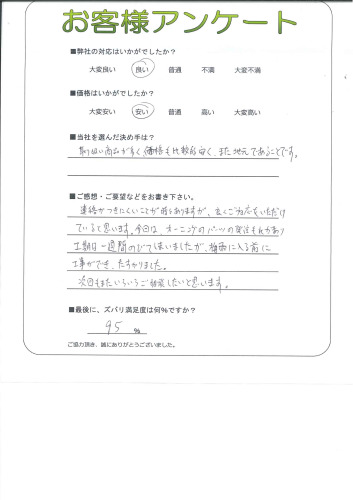 お客様アンケート
■弊社の対応はいかがでしたか？
大変良い 良い 普通 不満 大変不満
■価格はいかがでしたか？
大変安い 安い 普通 高い 大変高い
■当社を選んだ決め手は？
取扱い商品が多く、価格も比較的安く、また地元であることです。
■ご感想・ご要望などをお書き下さい。
連絡がつきにくいことが時々ありますが、よくご対応をいただけ
ていると思います。今回は、オーニングのパーツの発注もれがあり
工期は一週間のびてしまいましたが、梅雨に入る前に
工事ができ、たすかりました。
次回もまたいろいろご相談したいと思います。
■最後に、ズバリ満足度は何％ですか？
95 ％
ご協力頂き、誠にありがとうございました。